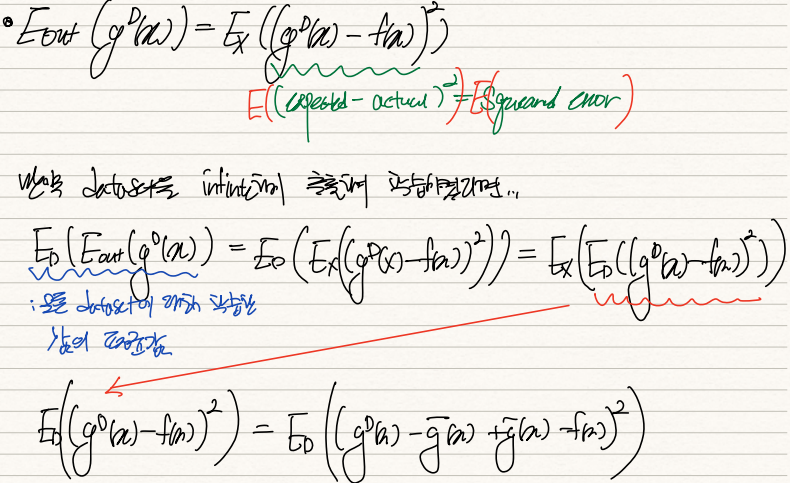 • Eout (g^D(x)) = E_X((g^D(x) - f(x))^2)
E((expected - actual)^2) = E(Squared error)
만약 dataset을 infinite하게 추출해 학습해본다면...
E_D(Eout(g^D(x)) = E_D(E_X((g^D(x) - f(x))^2)) = E_X(E_D((g^D(x) - f(x))^2))
: 모든 dataset에 대해 학습한
E_D((g^D(x) - f(x))^2) = E_D((g^D(x) - ḡ(x) + ḡ(x) - f(x))^2)